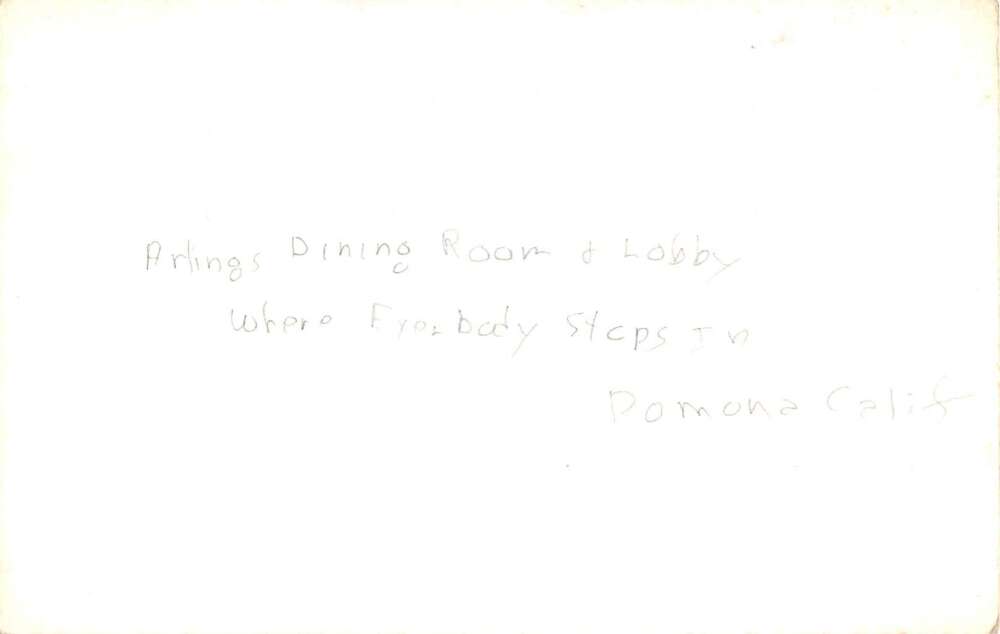 Arlings Dining Room & Lobby
Where Everbody Steps In
Pomona Calif